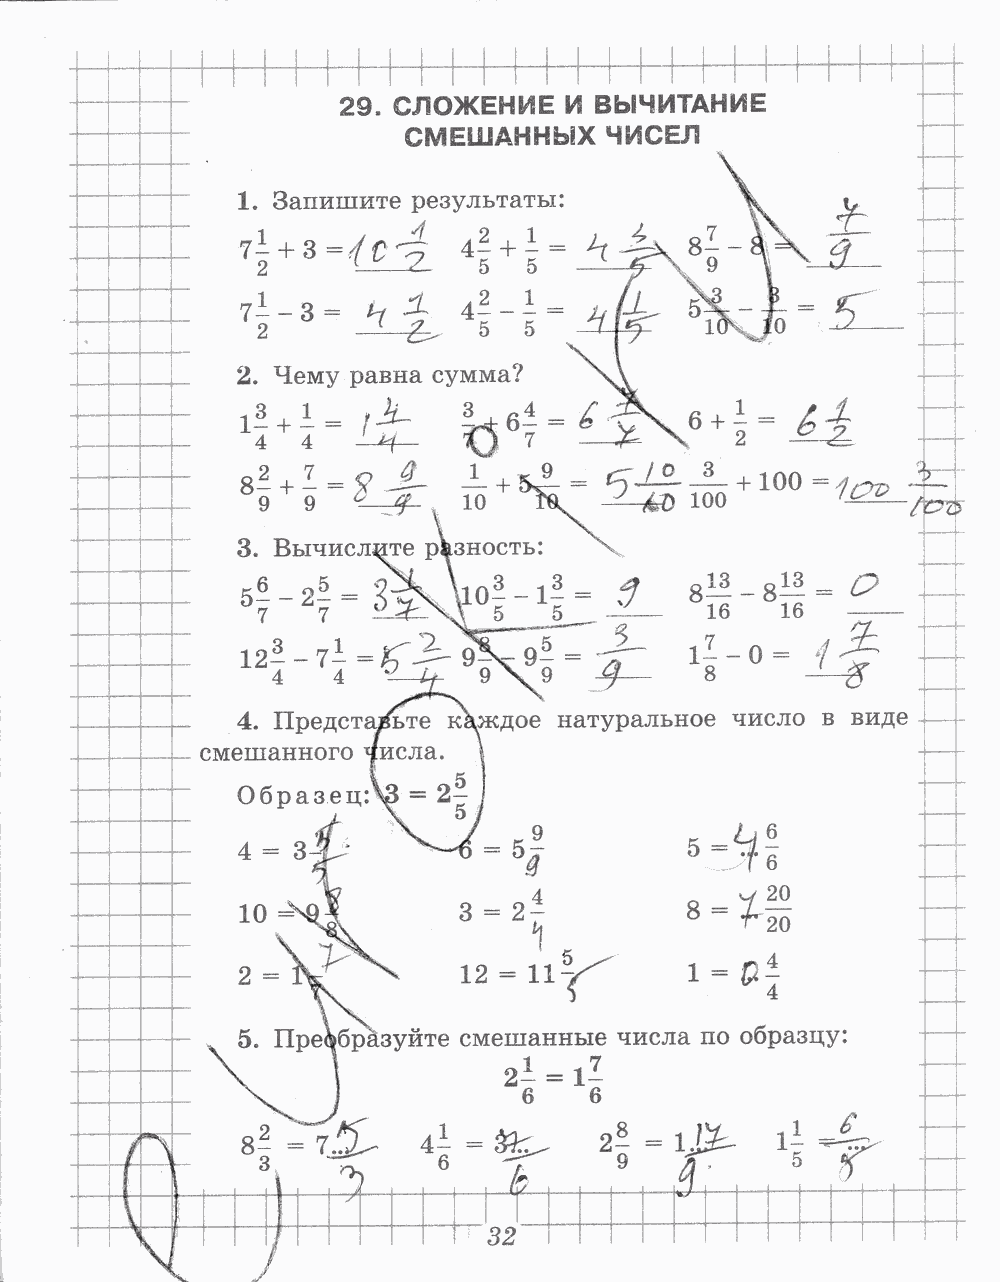 29. СЛОЖЕНИЕ И ВЫЧИТАНИЕ
СМЕШАННЫХ ЧИСЕЛ
1. Запишите результаты:
7 1/2 + 3 = 10 1/2 4 2/5 + 1/5 = 4 3/5 8 7/9 − 8 = 7/9
7 1/2 − 3 = 4 1/2 4 2/5 − 1/5 = 4 1/5 5 3/10 − 3/10 = 5
2. Чему равна сумма?
1 3/4 + 1/4 = 1 4/4 3/7 + 6 4/7 = 6 7/7 6 + 1/2 = 6 1/2
8 2/9 + 7/9 = 8 9/9 1/10 + 5 9/10 = 5 10/10 3/100 + 100 = 100 3/100
3. Вычислите разность:
5 6/7 − 2 5/7 = 3 1/7 10 3/5 − 1 3/5 = 9 8 13/16 − 8 13/16 = 0
12 3/4 − 7 1/4 = 5 2/4 9 8/9 − 9 5/9 = 3/9 1 7/8 − 0 = 1 7/8
4. Представьте каждое натуральное число в виде
смешанного числа.
Образец: 3 = 2 5/5
4 = 3 5/5 6 = 5 9/9 5 = 4 6/6
10 = 9 8/8 3 = 2 4/4 8 = 7 20/20
2 = 1 7/7 12 = 11 5/5 1 = 0 4/4
5. Преобразуйте смешанные числа по образцу:
2 1/6 = 1 7/6
8 2/3 = 7 5/3 4 1/6 = 3 7/6 2 8/9 = 1 17/9 1 1/5 = 6/5
32